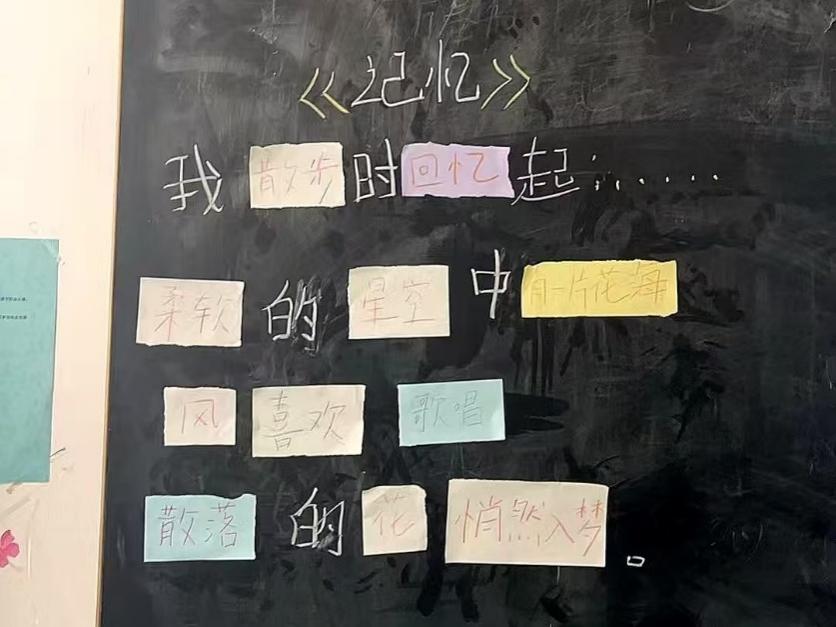 《记忆》
我散步时回忆起......
柔软的星空中有一片花海
风喜欢歌唱
散落的花悄然入梦。